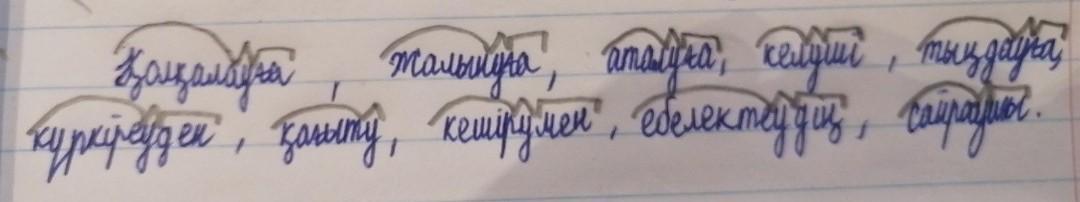 Қолқалауға, жалынуға, аталуға, келуші, тыңдауға,
күркіреуден, қағыту, кешірумен, ебелектеудің, сайраушы.